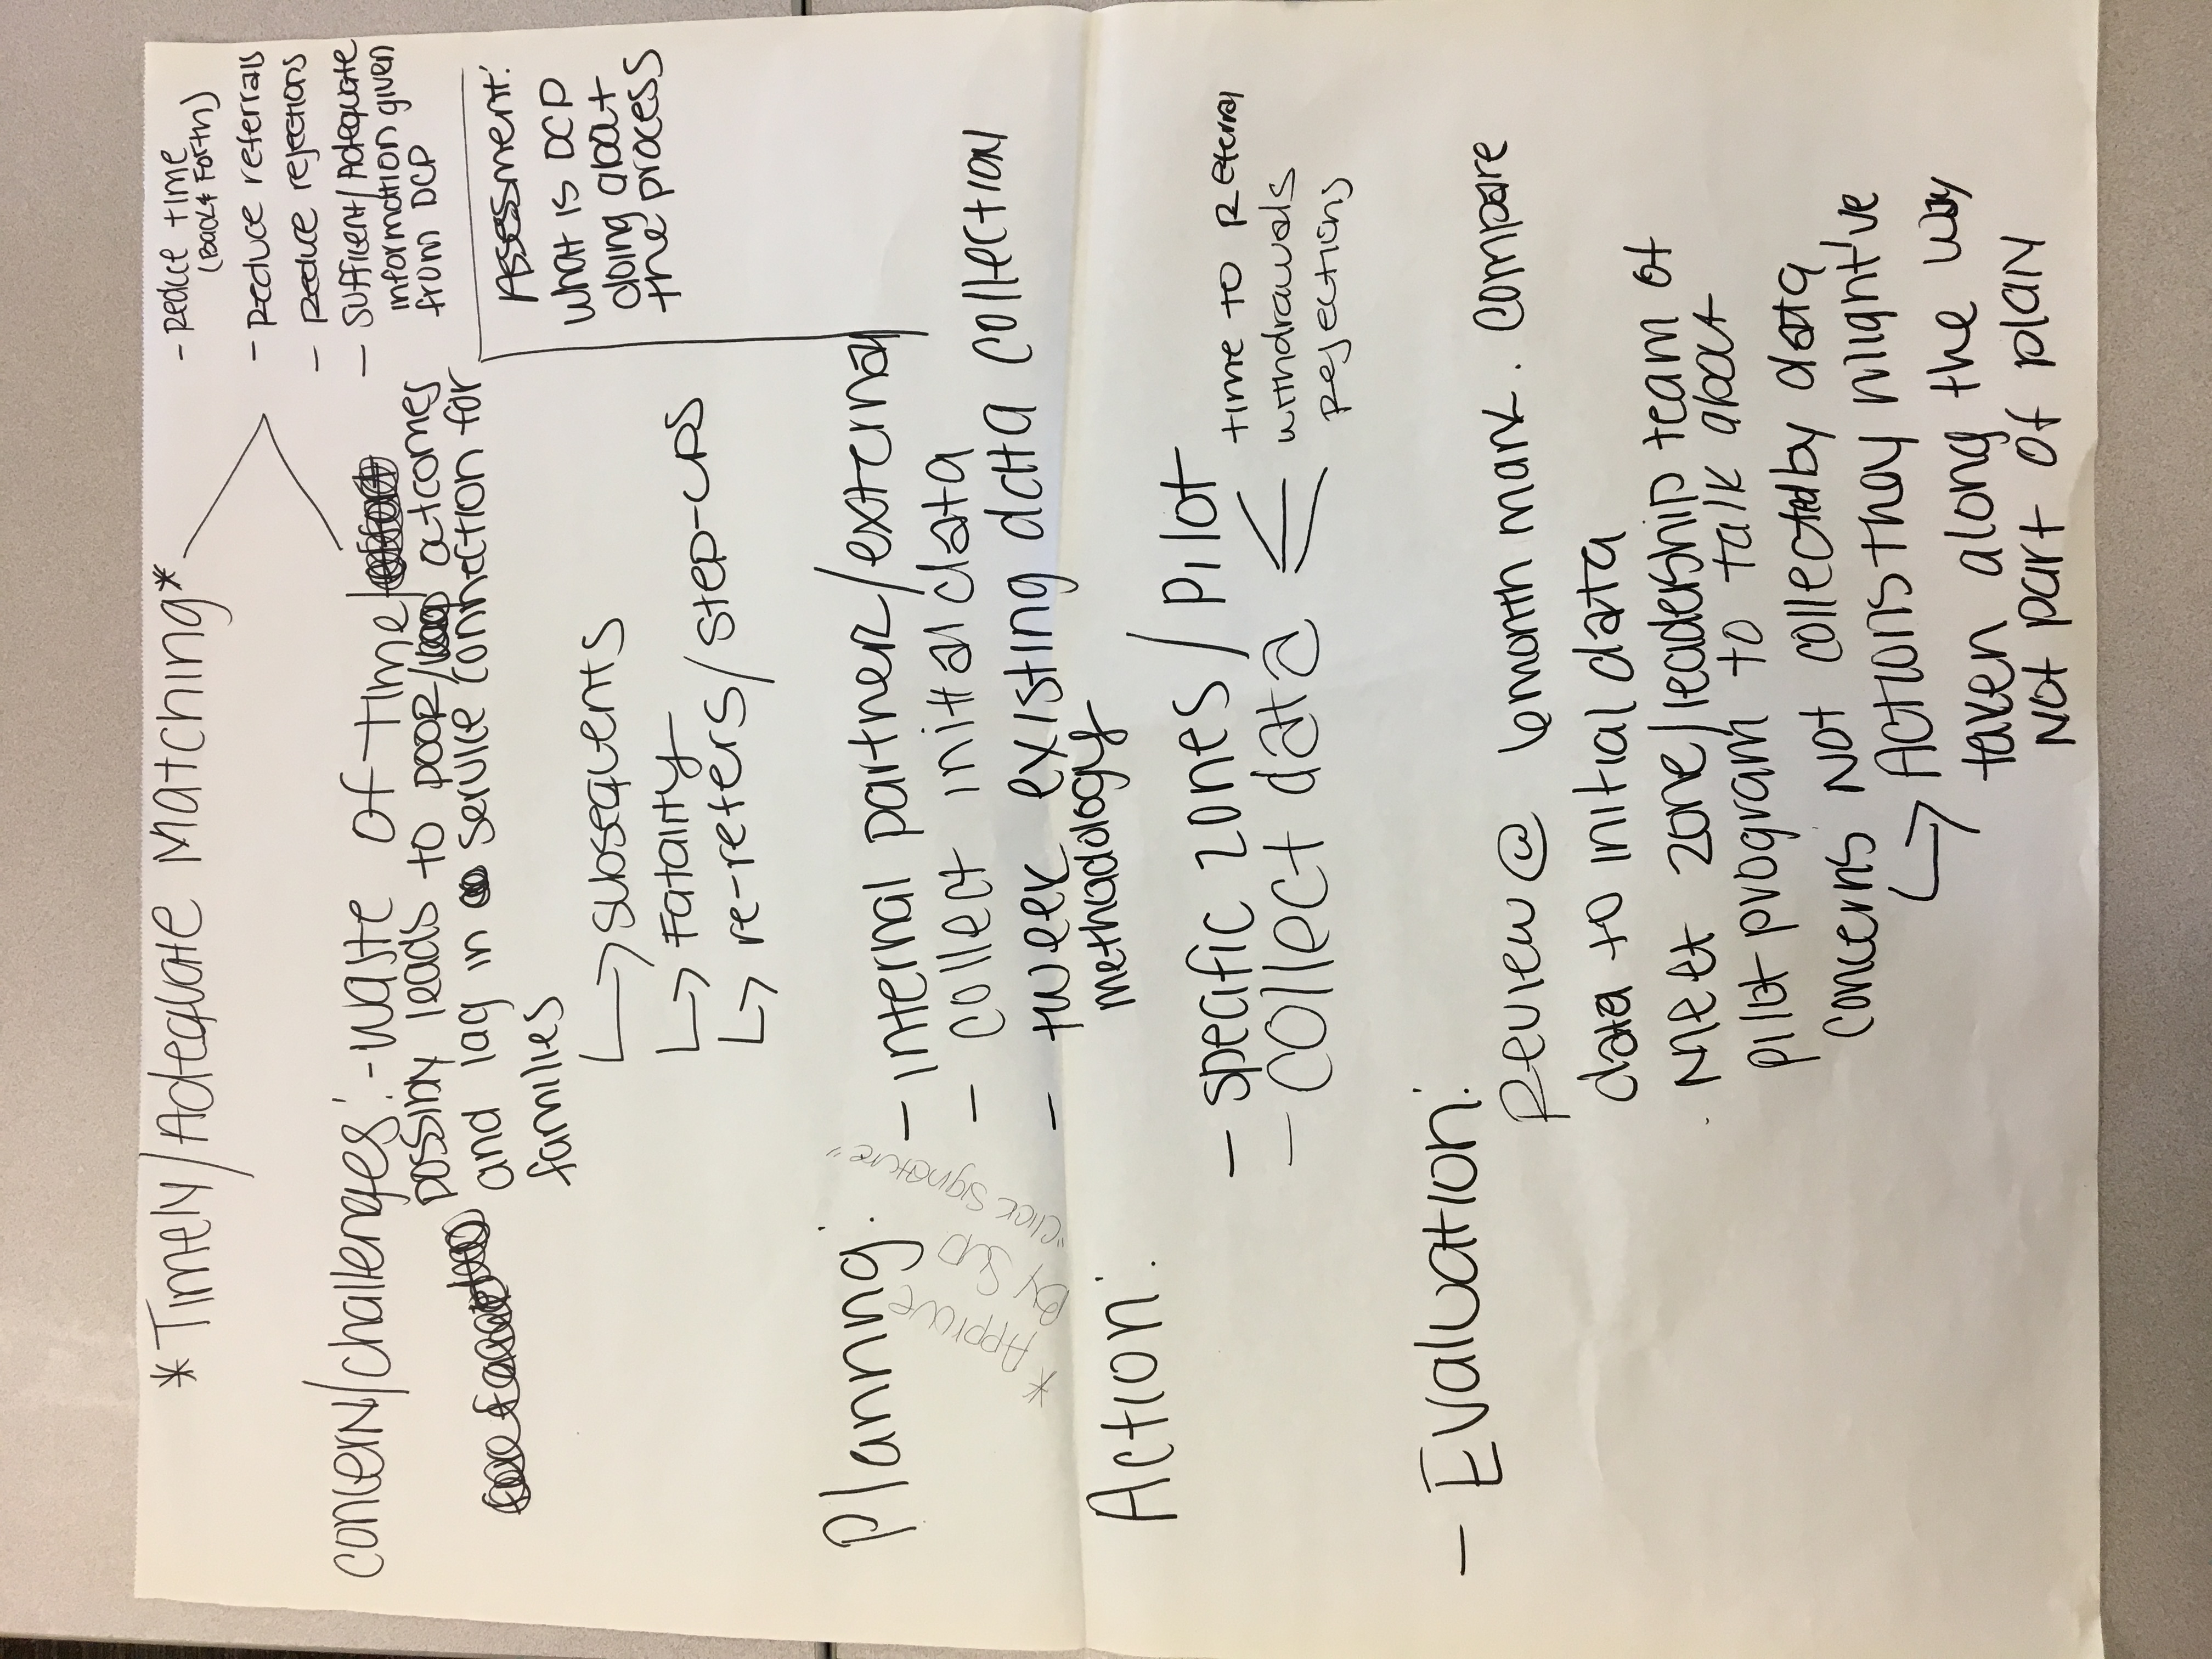 *Timely/Adequate Matching*
- Reduce time
(Back & Forth)
- Reduce referrals
- Reduce rejections
- Sufficent/Adequate
information given
from DCP
Concern/challenges: - waste of time/
possibly leads to poor/ outcomes
and lag in service connection for
families
↳ subsequents
↳ Fatality
↳ re-refers/step-ups
Assessment:
What is DCP
doing about
the process
Planning:
* Approve
By Sup.
"Click Signature"
- internal partner/external
- collect initial data
- tweek existing data collection
methodology
Action:
- specific zones / Pilot
- collect data
time to Referral
withdrawals
Rejections
- Evaluation:
Review @ 6 month mark. Compare
data to initial data
Meet zone/leadership team of
pilot program to talk about
concerns not collected by data
↳ Actions they might've
taken along the way
Not part of plan